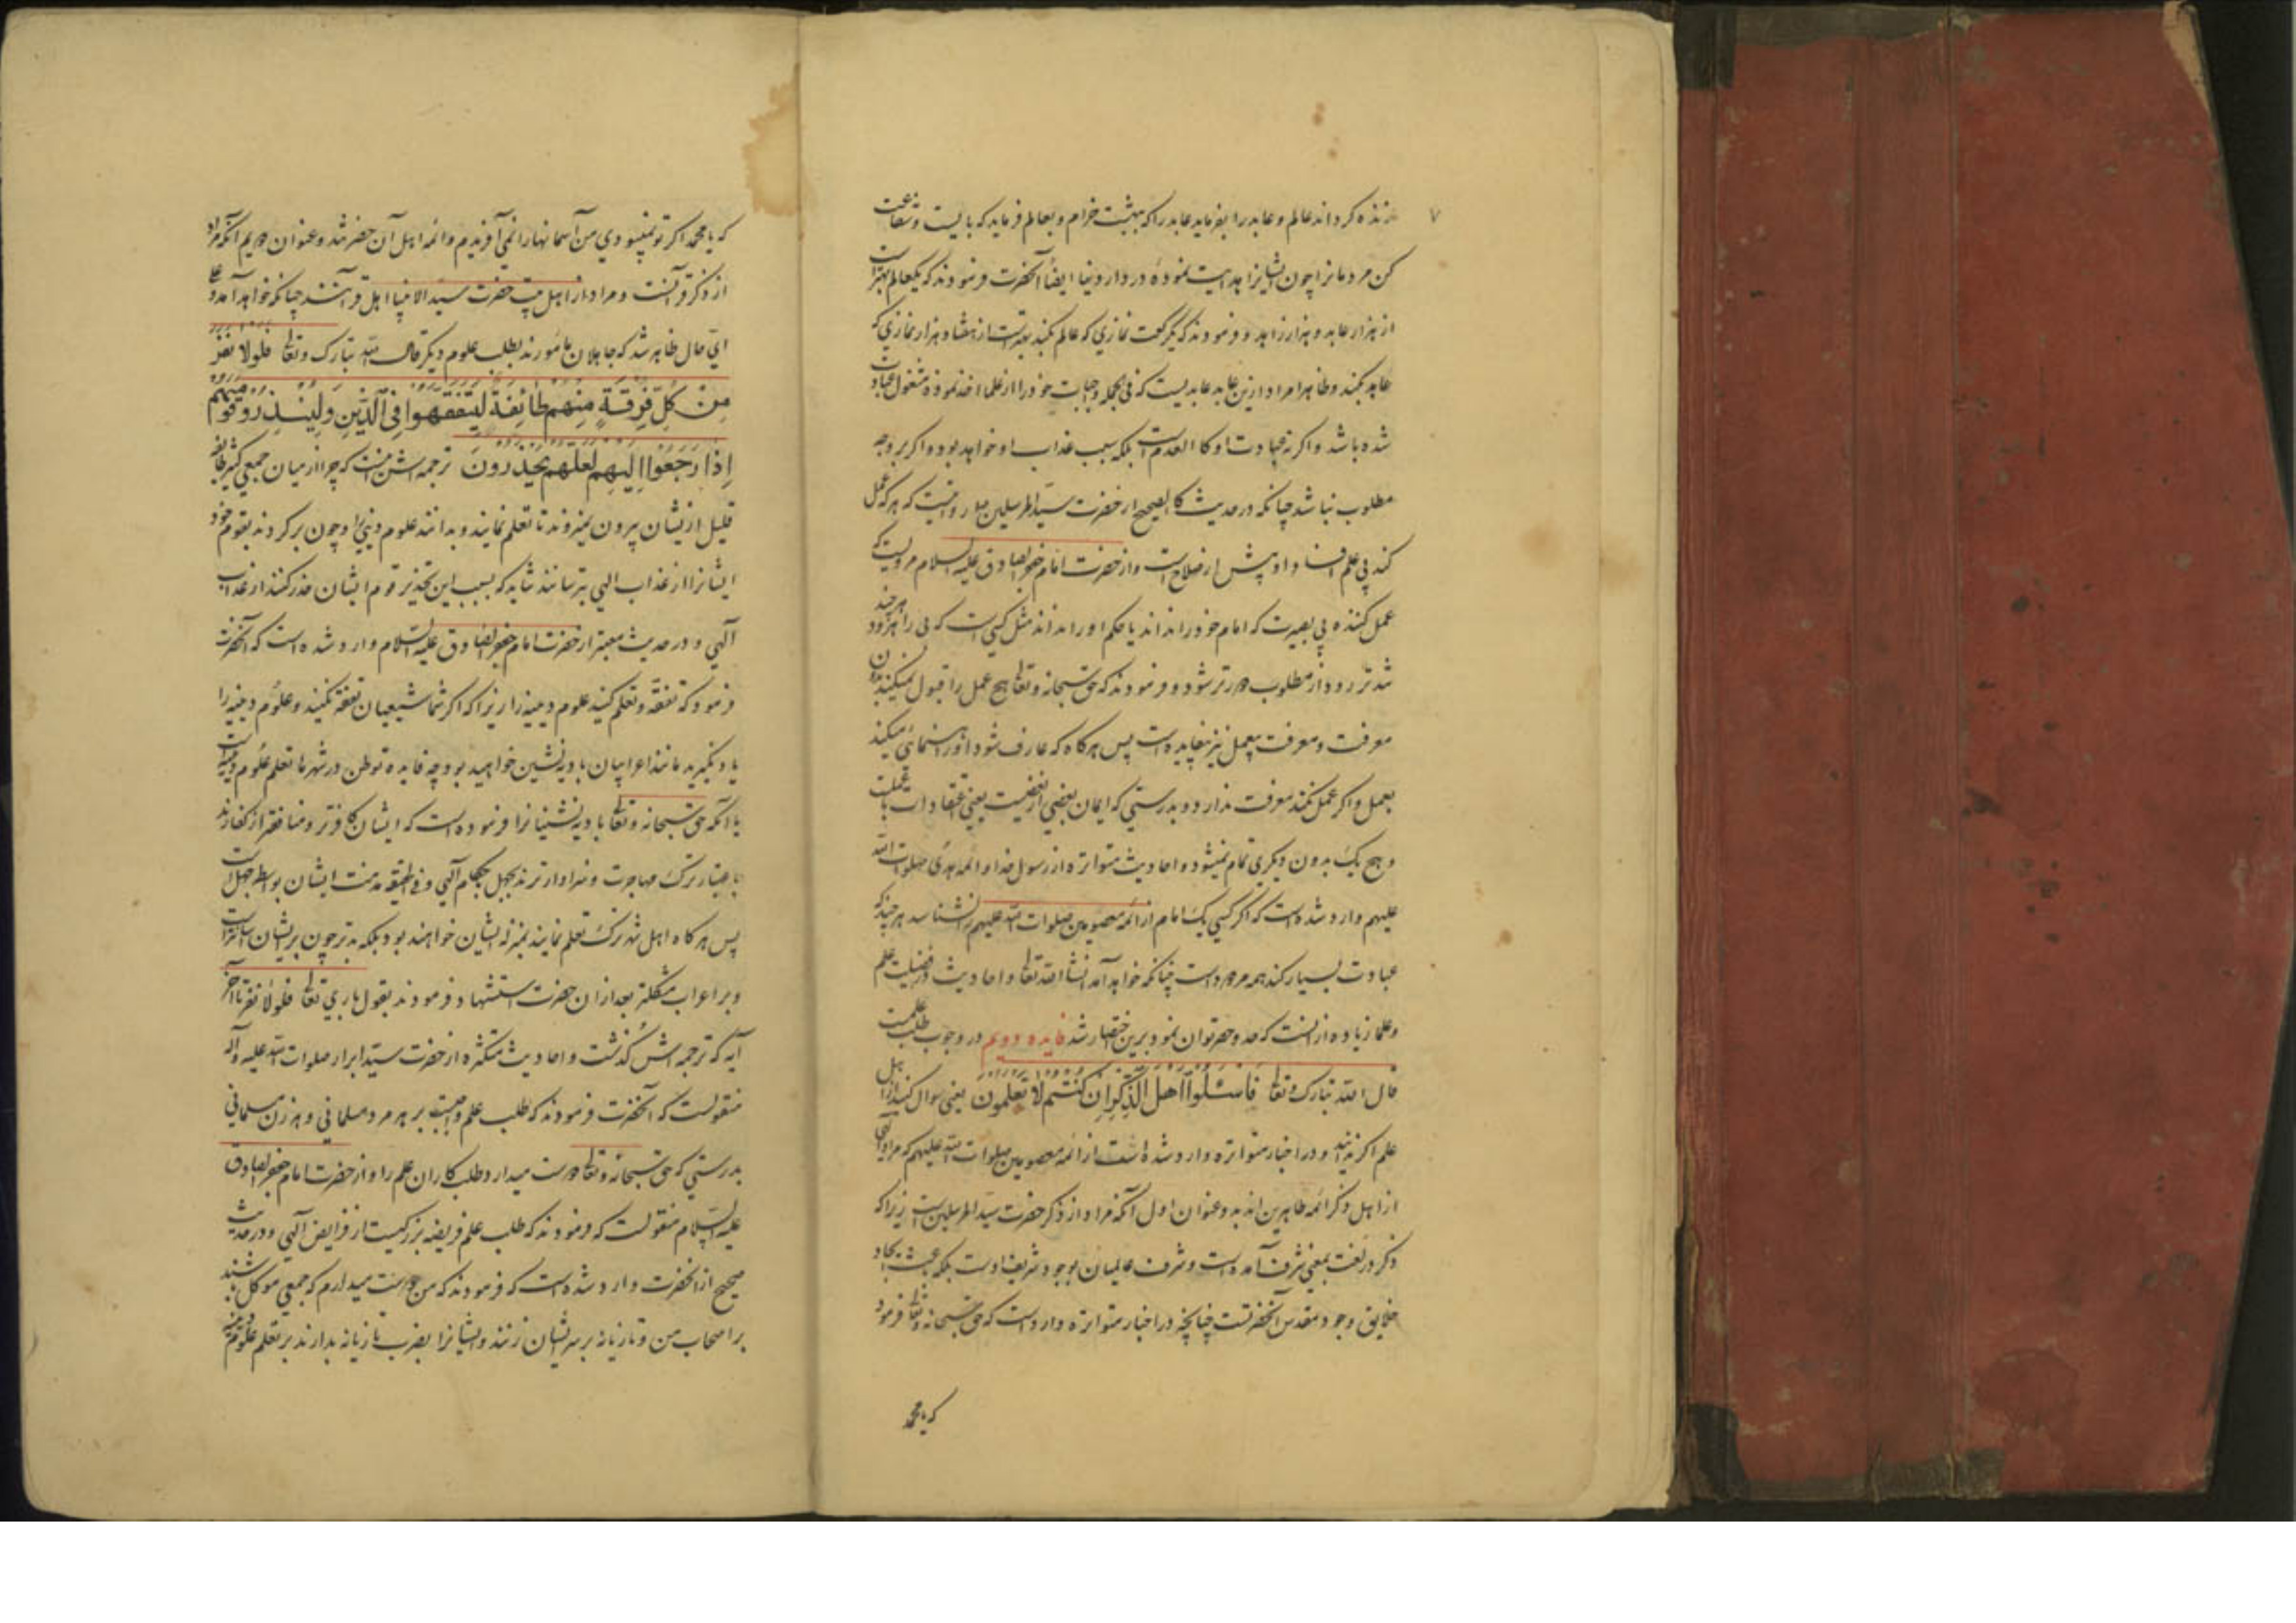 ۷
زنده گرداند عالم و عابد را بفرماید عابد را که ببهشت خرام و بعالم فرماید که بایست و شفاعت
کن مردمانرا چون ایشانرا هدایت نمودهٔ در دار دنیا ایضاً آنحضرت فرمودند که یکعالم بهتر است
از هزار عابد و هزار زاهد و فرمودند که یکرکعت نمازی که عالم بکند بهتر است از هفتاد هزار نمازی که
عابد بکند و ظاهرا مراد ازین عابد عابدیست که فی الجمله واجبات خود را از علما اخذ نموده مشغول عبادت
شده باشد و اگر نه عبادت او کالعدم است بلکه سبب عذاب او خواهد بود و اگر بر وجه
مطلوب نباشد چنانکه در حدیث کالصحیح از حضرت سید المرسلین مرویست که هر که عمل
کند بی علم افساد او بیش از صلاح است و از حضرت امام جعفر الصادق علیه السلام مرویست که
عمل کننده بی بصیرت که امام خود را نداند یا حکم او را نداند مثل کسی است که بی راه رود هر چند
تند تر رود از مطلوب دورتر شود و فرمودند که حق سبحانه و تعالی هیچ عمل را قبول نمیکند بدون
معرفت و معرفت بیعمل نیز بیفایده است پس هرگاه که عارف شود او را رهنمائی میکند
بعمل و اگر عمل نکند معرفت ندارد و بدرستی که ایمان بعضی از بعضیست یعنی اعتقادات با عملست
و هیچ یک بدون دیگری تمام نمیشود و احادیث متواتره از رسول خدا و ائمه هدی صلوات الله
علیهم وارد شده است که اگر کسی یک امام از ائمه معصومین صلوات الله علیهم را نشناسد هر چند که
عبادت بسیار کند همه مردود است چنانکه خواهد آمد انشا الله تعالی و احادیث در فضیلت علم
و علما زیاده از آنست که عد و حصر توان نمود برین اختصار شد فایده دویم در وجوب طلب علمست
قال الله تبارک و تعالی فَاسْئَلُوا اَهْلَ الذِّکْرِ اِنْ کُنْتُمْ لَا تَعْلَمُونَ یعنی سوال کنید از اهل
علم اگر ندانید و در اخبار متواتره وارد شده است از ائمه معصومین صلوات الله علیهم که مراد الهی
از اهل ذکر ائمه طاهرین اند بدو عنوان اول آنکه مراد از ذکر حضرت سید المرسلین است زیرا که
ذکر در لغت بمعنی شرف آمده است و شرف عالمیان بوجود شریف اوست بلکه باعث ایجاد
خلایق وجود مقدس آنحضرتست چنانچه در اخبار متواتره وارد است که حق سبحانه و تعالی فرمود
که یا محمد
که یا محمد اگر تو نمیبودی من آسمانها را نمی آفریدم و ائمه اهل آن حضرتند و عنوان دویم آنکه مراد
از ذکر قرآنست و مراد از اهل بیت حضرت سید الانبیا اهل قرآنند چنانکه خواهد آمد و علی
ای حال ظاهر شد که جاهلان مامورند بطلب علوم دیگر قال الله تبارک و تعالی فَلَوْلَا نَفَرَ
مِنْ کُلِّ فِرْقَةٍ مِنْهُمْ طَائِفَةٌ لِیَتَفَقَّهُوا فِی الدِّینِ وَلِیُنْذِرُوا قَوْمَهُمْ
اِذَا رَجَعُوا اِلَیْهِمْ لَعَلَّهُمْ یَحْذَرُونَ ترجمه اش اینست که چرا از میان جمعی کثیر طایفه
قلیل از ایشان بیرون نمیروند تا تعلم نمایند و بدانند علوم دینی را و چون برگردند بقوم خود
ایشانرا از عذاب الهی بترسانند شاید که بسبب این تحذیر قوم ایشان حذر کنند از عذاب
الهی و در حدیث معتبر از حضرت امام جعفر الصادق علیه السلام وارد شده است که آنحضرت
فرمود که تفقه و تعلم کنید علوم دینیه را زیرا که اگر شما شیعیان تفقه نکنید و علوم دینیه را
یاد نگیرید مانند اعرابیان بادیه نشین خواهید بود چه فایده توطن در شهرها تعلم علوم دینیه است
با آنکه حق سبحانه و تعالی بادیه نشینانرا فرموده است که ایشان کافرتر و منافقتر از کفارند
باعتبار ترک مهاجرت و سزاوارترند بجهل باحکام الهی و فی الحقیقه مذمت ایشان بواسطه جهل است
پس هرگاه اهل شهر ترک تعلم نمایند بمنزله ایشان خواهند بود بلکه بدتر چون بر ایشان آسانتر است
و بر اعراب مشکلتر بعد از آن حضرت استشهاد فرمودند بقول باری تعالی فلولا نفر تا آخر
آیه که ترجمه اش گذشت و احادیث متکثره از حضرت سید ابرار صلوات الله علیه و آله
منقولست که آنحضرت فرمودند که طلب علم واجبست بر هر مرد مسلمانی و هر زن مسلمانی
بدرستی که حق سبحانه و تعالی دوست میدارد طلب کاران علم را و از حضرت امام جعفر الصادق
علیه السلام منقولست که فرمودند که طلب علم فریضه بزرگیست از فرایض الهی و در حدیث
صحیح از آنحضرت وارد شده است که فرمودند که من دوست میدارم که جمعی موکل باشند
بر اصحاب من و تازیانه بر سر ایشان زنند و ایشانرا بضرب تازیانه بدارند بر تعلم علوم دینیه